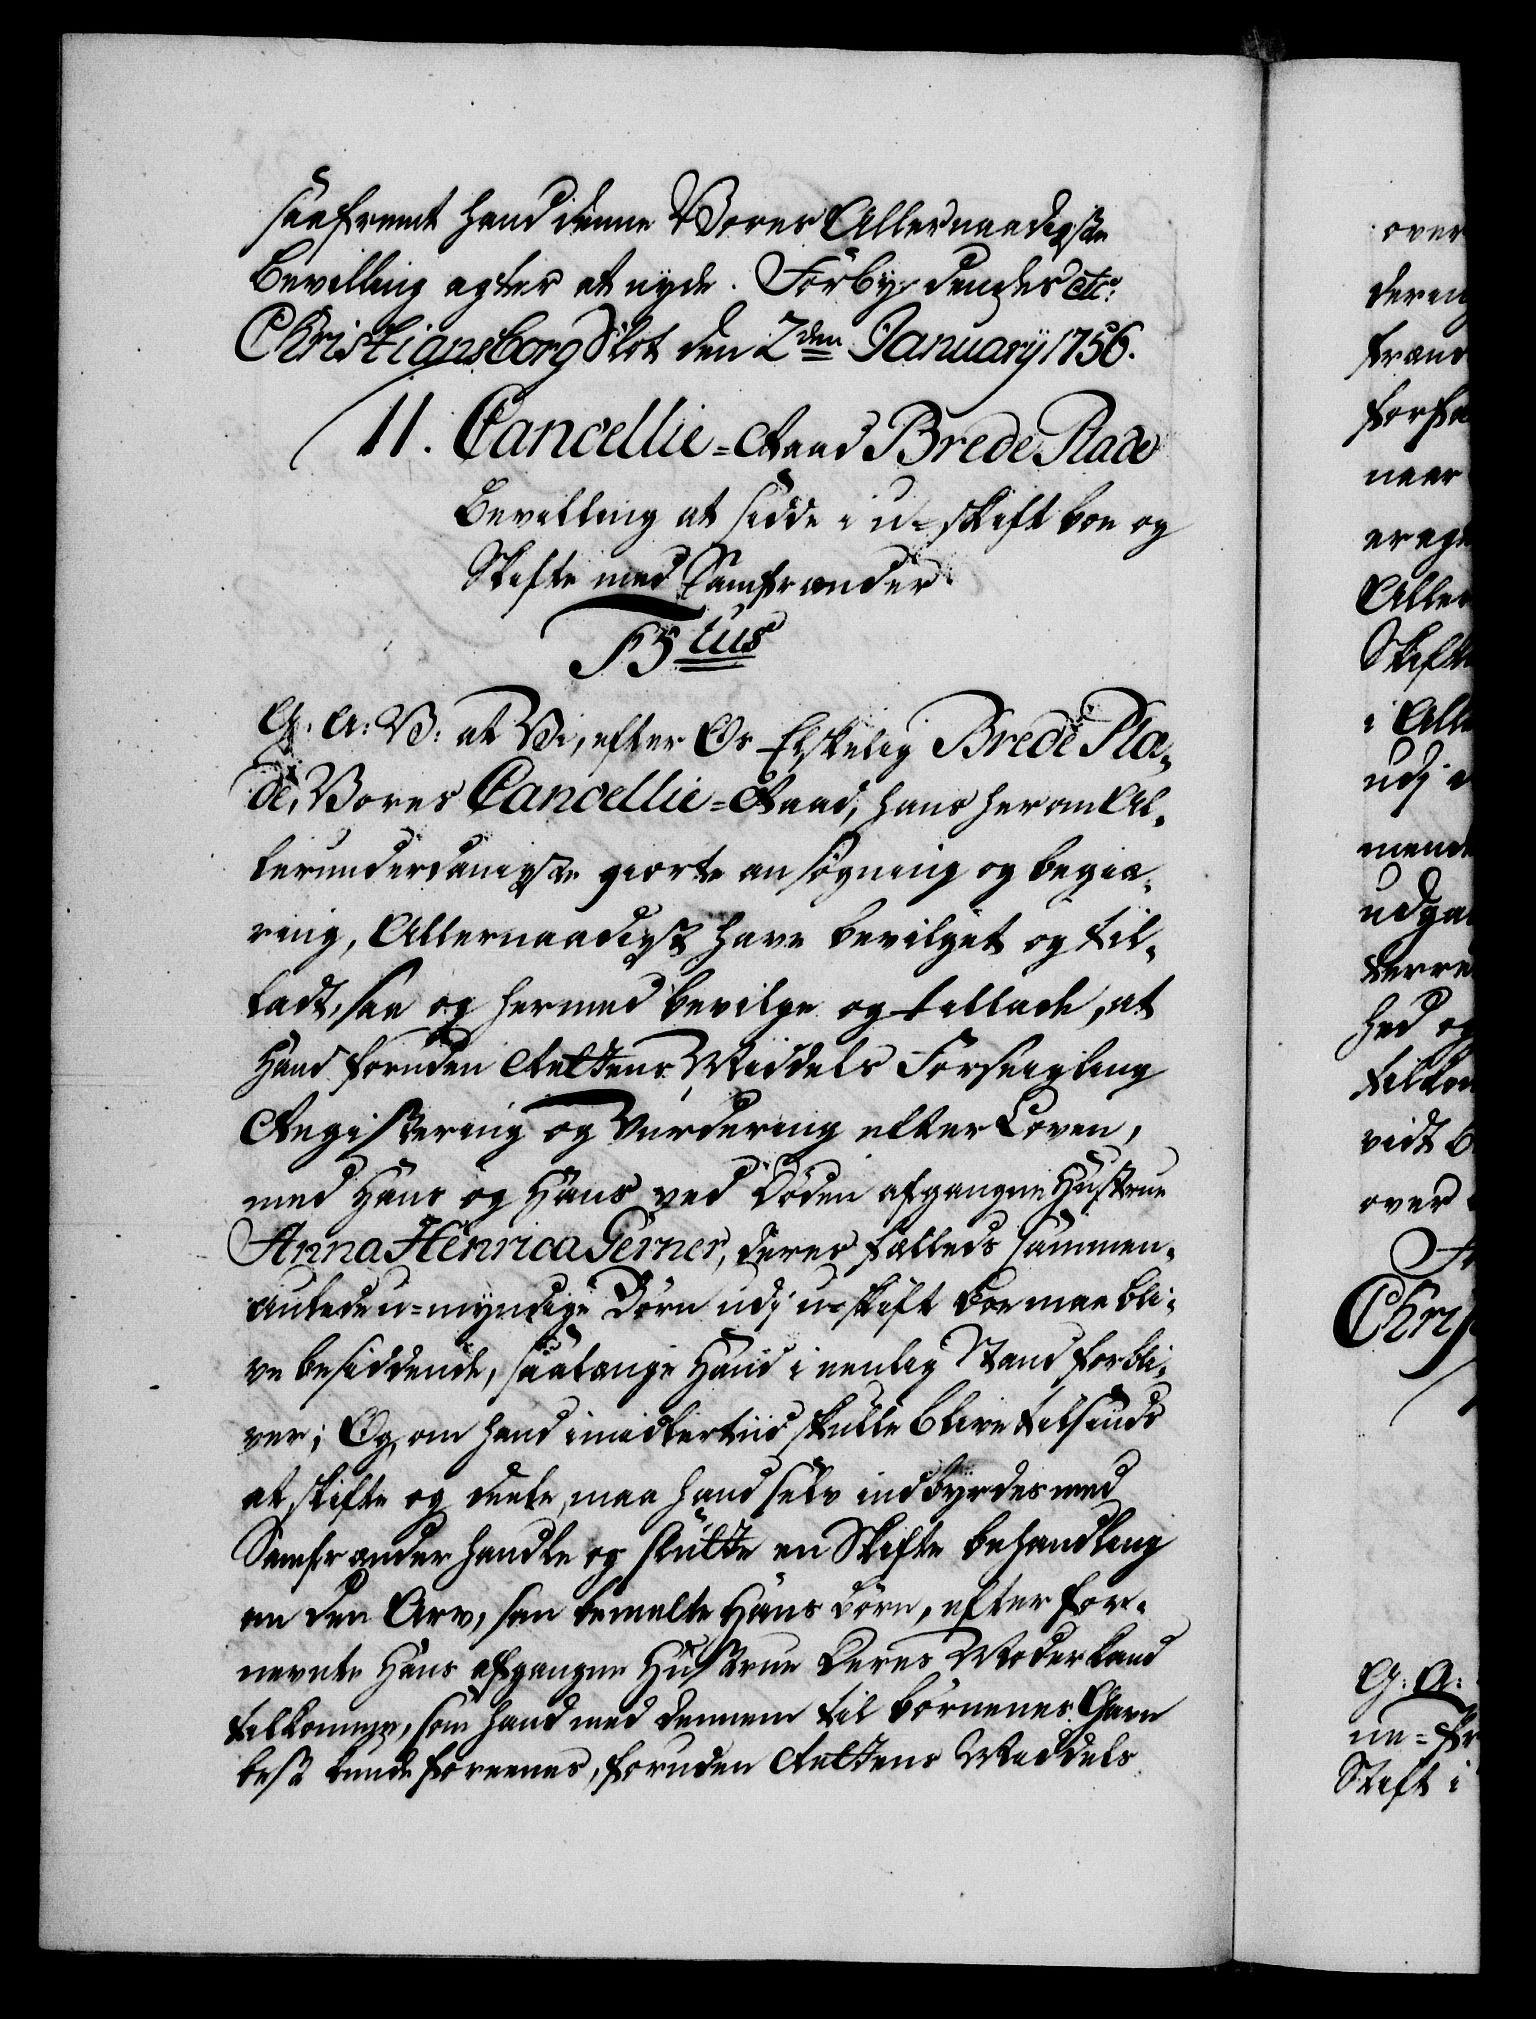 saafremt hand denne Vores Allernaadigste
Bevilling agter at nyde. Forbydendes etc:
Christiansborg Slot den 2den January 1756.
11. Cancellie=Raad Brede Plade
Bevilling at sidde i u=skift boe og
Skifte med Samfrænder.
F5tus
G: A: V: at Vi, efter Os Elskelig Brede Pla-
de, Vores Cancellie=Raad, hans herom Al-
lerunderdanigste giorte ansøgning og begiæ-
ring, Allernaadigst have bevilget og til-
ladt, saa og hermed bevilge og tillade, at
Hand foruden Rettens Middels Forseigling
Registering og Vurdering efter Loven,
med Hans og Hans ved Døden afgangne Hustrue
Anna Henrica Gerner, deres fælleds sammen-
aulede u=myndige Børn udj u-skift boe maa bli-
ve besiddende, saalænge Hand i eenlig Stand forbli-
ver; Og, om hand imidlertiid skulle blive tilsinds
at skifte og deele, maa hand selv indbyrdes med
Samfrænder handle og slutte en Skifte behandling
om den Arv, som bemelte Hans børn, efter for-
nevnte Hans afgangne Hustrue Deres Moder kand
tilkomme, som hand med dennem til børnenes Gavn
best kunde foreenes, foruden Rettens Middels
over
frænd
naar
Aller
Skifte
i Alle
udj
udga
hed og
vidt
over
Chris
G: A:
Skift i